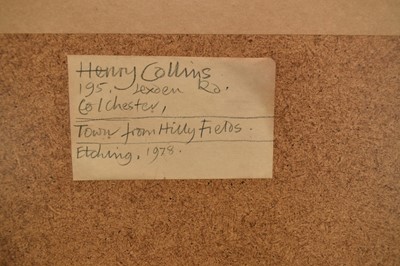 Henry Collins
195. Lexden Rd.
Colchester,
Town from Hilly Fields.
Etching, 1978.